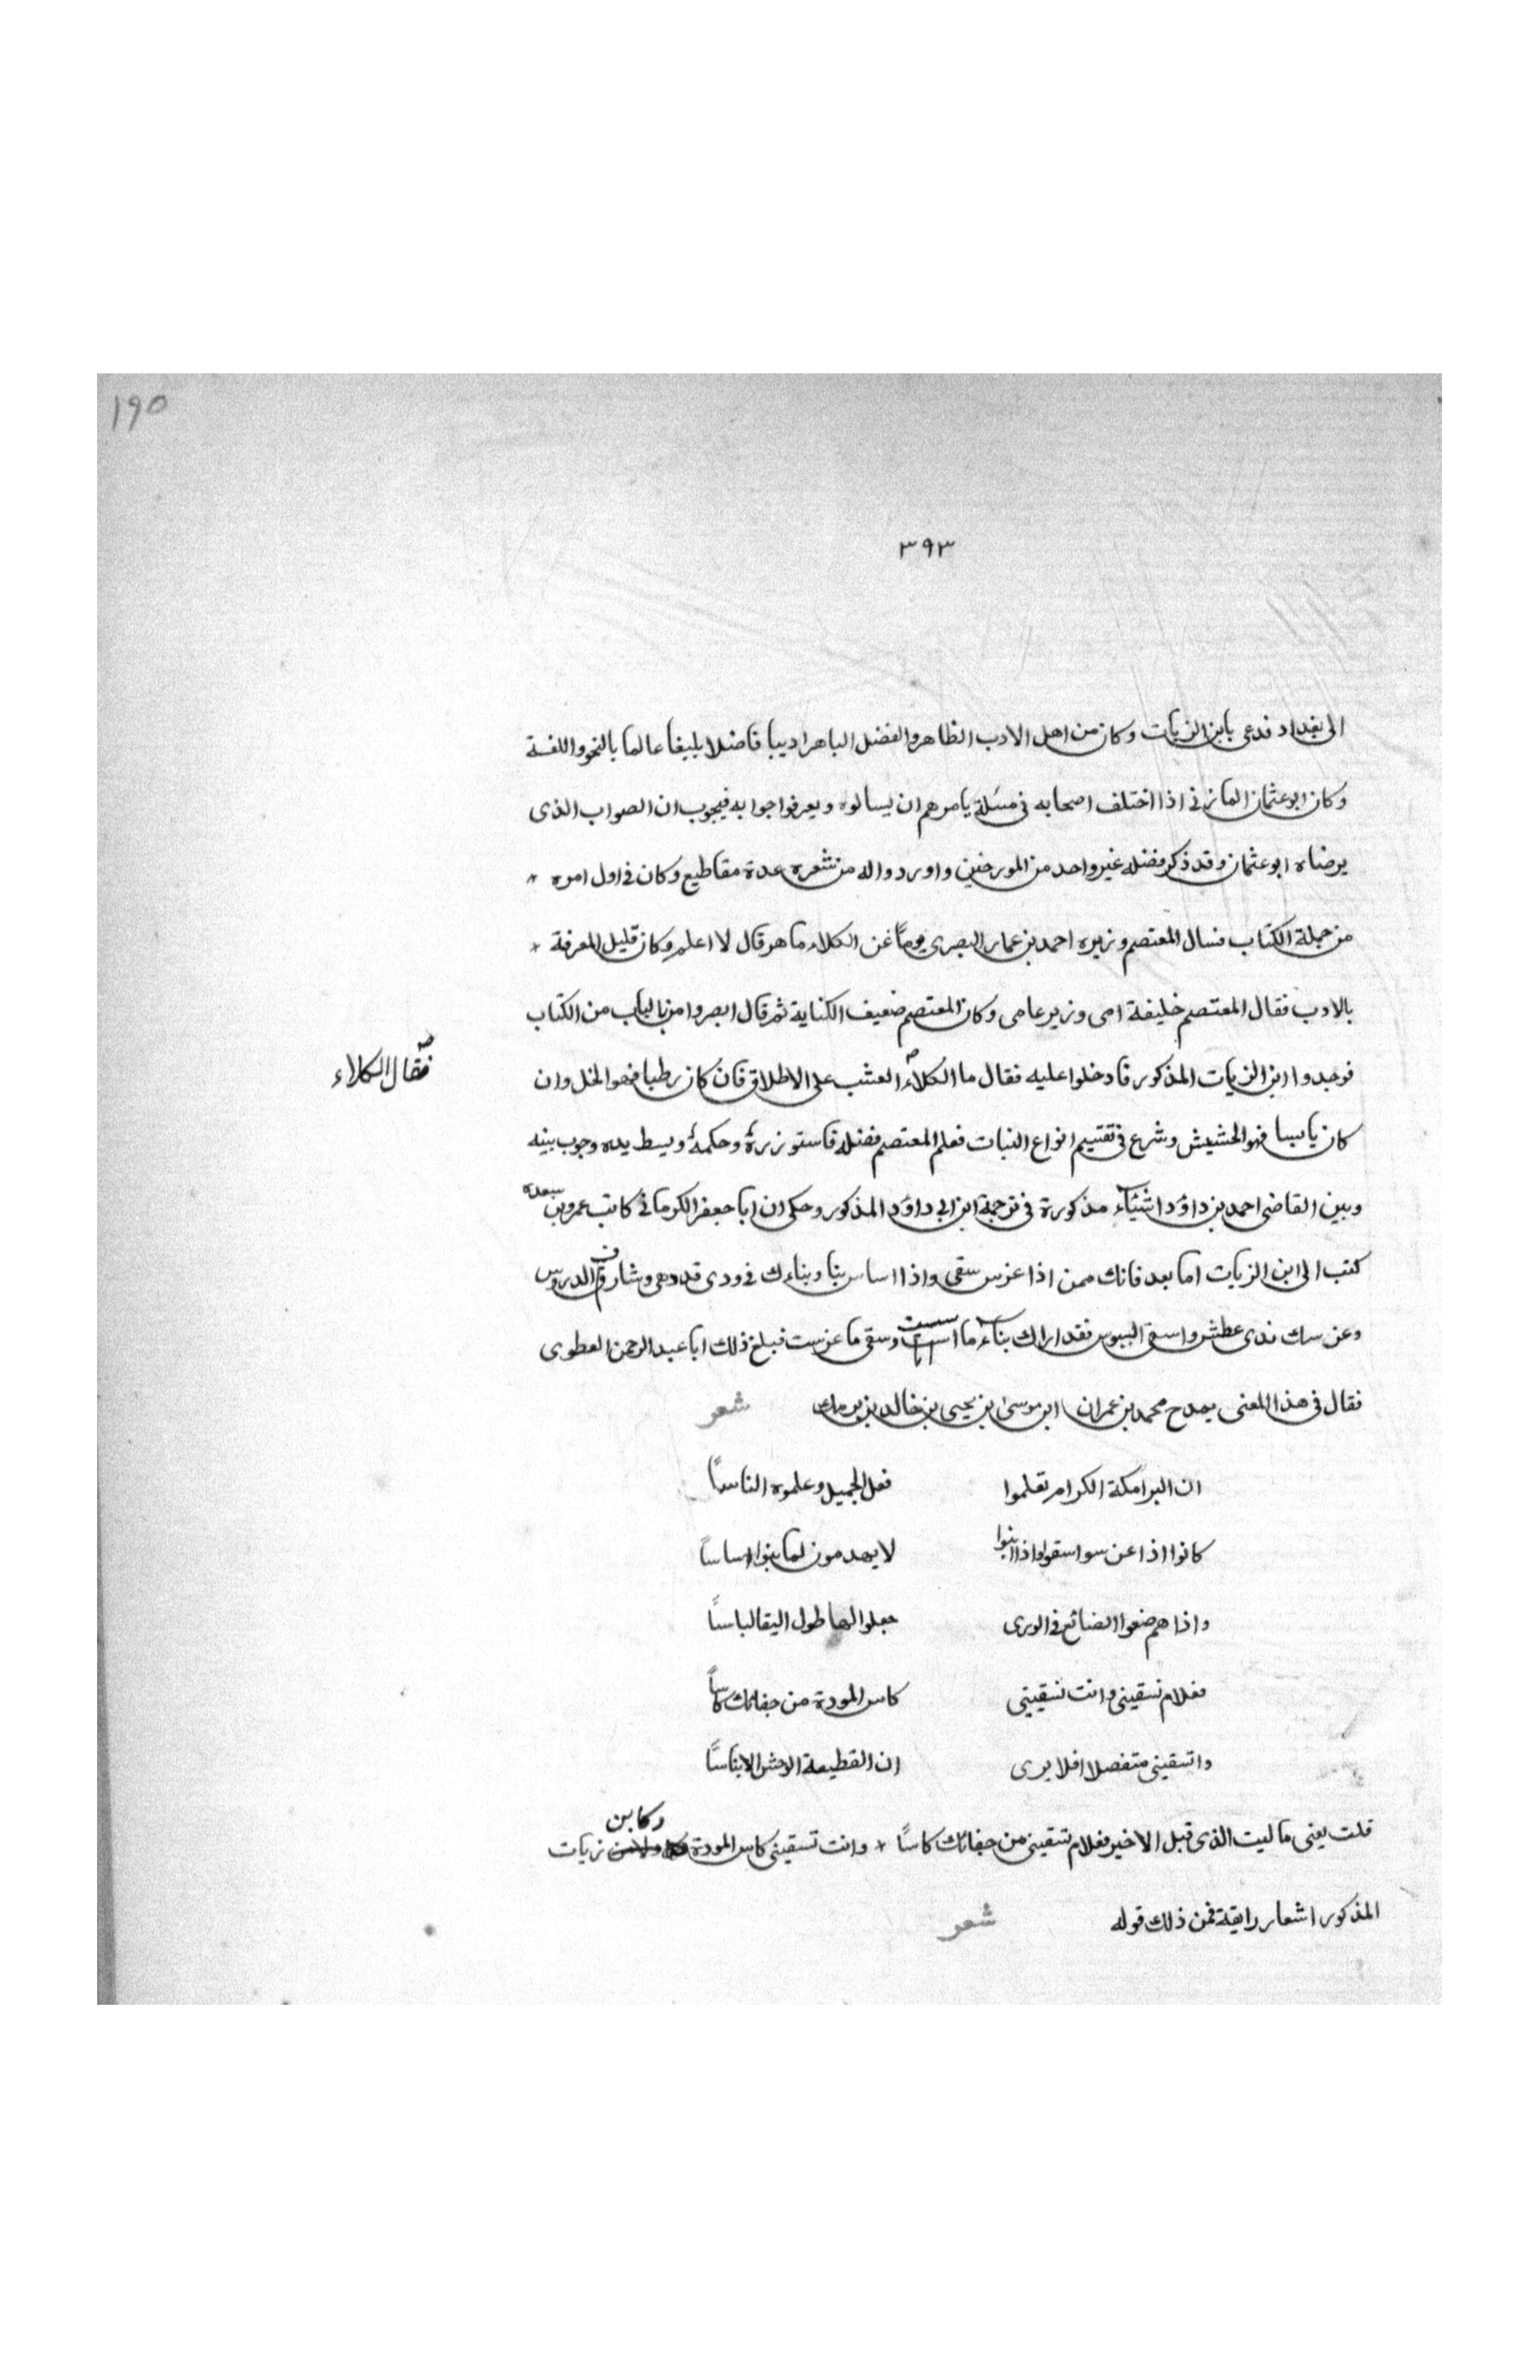 ١٩٥
٣٩٣
الى بغداد فدعى بابن الزيات وكان من اهل الادب الظاهر والفضل الباهر اديبا فاضلا بليغا عالما بالنحو واللغة
وكان ابو عثمان المازنى اذا اختلف اصحابه فى مسئلة يامرهم ان يسالوه ويعرفوا جوابه فيجوب ان الصواب الذى
يرضاه ابو عثمان وقد ذكر فضله غير واحد من المورخين واوردوا له من شعره عدة مقاطيع وكان فى اول امره
من جملة الكتاب فسال المعتصم وزيره احمد بن عمار البصرى يوماً عن الكلاء ما هو قال لا اعلم وكان قليل المعرفة
بالادب فقال المعتصم خليفة امى ووزير عامى وكان المعتصم ضعيف الكتابة ثم قال ابصروا من بالباب من الكتاب
فوجدوا ابن الزيات المذكور فادخلوا عليه فقال ما الكلاء العشب على الاطلاق فان كان رطبا فهو الخل وان
فقال الكلاء
كان يابسا فهو الحشيش وشرع فى تقسيم انواع النبات فعلم المعتصم فضله فاستوزرهٔ وحكمهٔ وبسط يده وجوب بينه
وبين القاضى احمد بن داؤد اشئاء مذكورة فى ترجمة ابن ابى داؤد المذكور وحكى ان ابا جعفر الكرمانى كاتب عمرو بن سعده
كتب الى ابن الزيات اما بعد فانك ممن اذا غرس سقى واذا اساس بنا وبناءك فى ودى قد وهى وشارف الدروس
وغرسك ندى عطش واسقى اليبوس فقد اراك بناء ما اسست وسقى ما غرست فبلغ ذلك ابا عبد الرحمن العطوى
فقال فى هذا المعنى يمدح محمد بن عمران ابن موسىٰ بن يحيى بن خالد بن برمك شعر
ان البرامكة الكرام تعلموا فعل الجميل وعلموه الناساً
كانوا اذا غرسوا سقوا واذا ابنوا لا يهدمون لما بنوا اساساً
واذا هم ضعوا الضائع فى الورى جعلوا لها طول اليقا لباساً
فعلام تسقينى وانت تسقيتى كاس المودة من جفائك كاساً
واتسقينى متفصلا افلا يرى ان القطيعة الاحش الايناساً
قلت يعنى ما ليت الذى قبل الاخير فعلام تسقينى من جفائك كاساً وانت تسقينى كاس المودة وكابن زيات
المذكور اشعار رايقة فمن ذلك قوله شعر